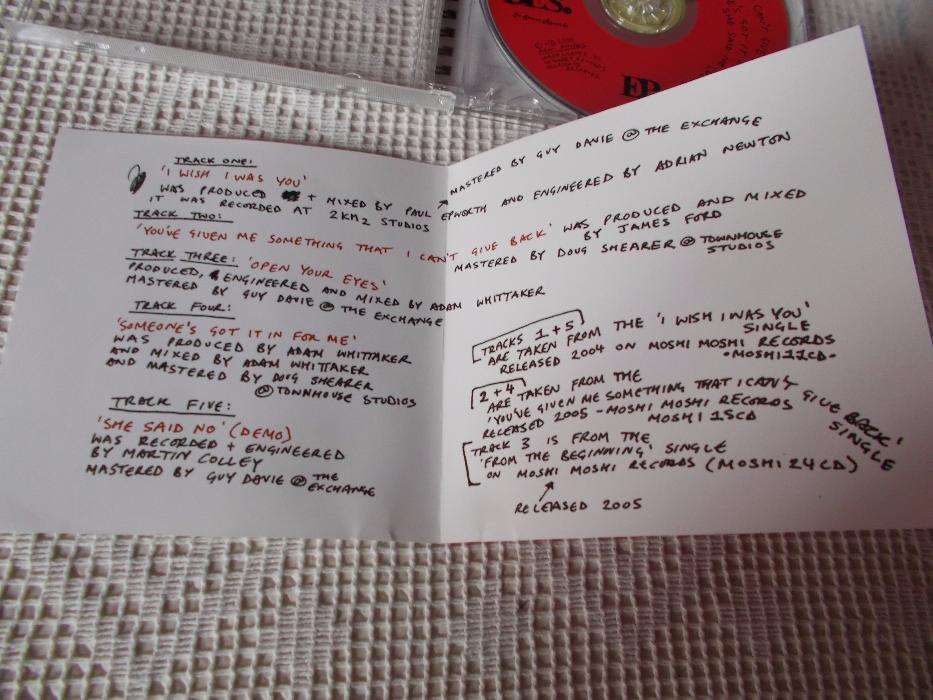 TRACK ONE:
'I WISH I WAS YOU'
WAS PRODUCED + MIXED BY PAUL EPWORTH AND ENGINEERED BY ADRIAN NEWTON
IT WAS RECORDED AT 2KM2 STUDIOS
MASTERED BY GUY DAVIE @ THE EXCHANGE
TRACK TWO:
'YOU'VE GIVEN ME SOMETHING THAT I CAN'T GIVE BACK' WAS PRODUCED AND MIXED
BY JAMES FORD
MASTERED BY DOUG SHEARER @ TOWNHOUSE
STUDIOS
TRACK THREE: 'OPEN YOUR EYES'
PRODUCED, ENGINEERED AND MIXED BY ADAM WHITTAKER
MASTERED BY GUY DAVIE @ THE EXCHANGE
TRACK FOUR:
'SOMEONE'S GOT IT IN FOR ME'
WAS PRODUCED BY ADAM WHITTAKER
AND MIXED BY ADAM WHITTAKER
AND MASTERED BY DOUG SHEARER
@ TOWNHOUSE STUDIOS
TRACK FIVE:
'SHE SAID NO' (DEMO)
WAS RECORDED + ENGINEERED
BY MARTIN COLLEY
MASTERED BY GUY DAVIE @ THE
EXCHANGE
TRACKS 1+5
ARE TAKEN FROM THE 'I WISH I WAS YOU'
SINGLE
RELEASED 2004 ON MOSHI MOSHI RECORDS
-MOSHI11CD-
2+4
ARE TAKEN FROM THE
'YOU'VE GIVEN ME SOMETHING THAT I CAN'T GIVE BACK'
SINGLE
RELEASED 2005 - MOSHI MOSHI RECORDS
MOSHI 15CD
TRACK 3 IS FROM THE
'FROM THE BEGINNING' SINGLE
ON MOSHI MOSHI RECORDS (MOSHI 24CD)
RELEASED 2005
EP